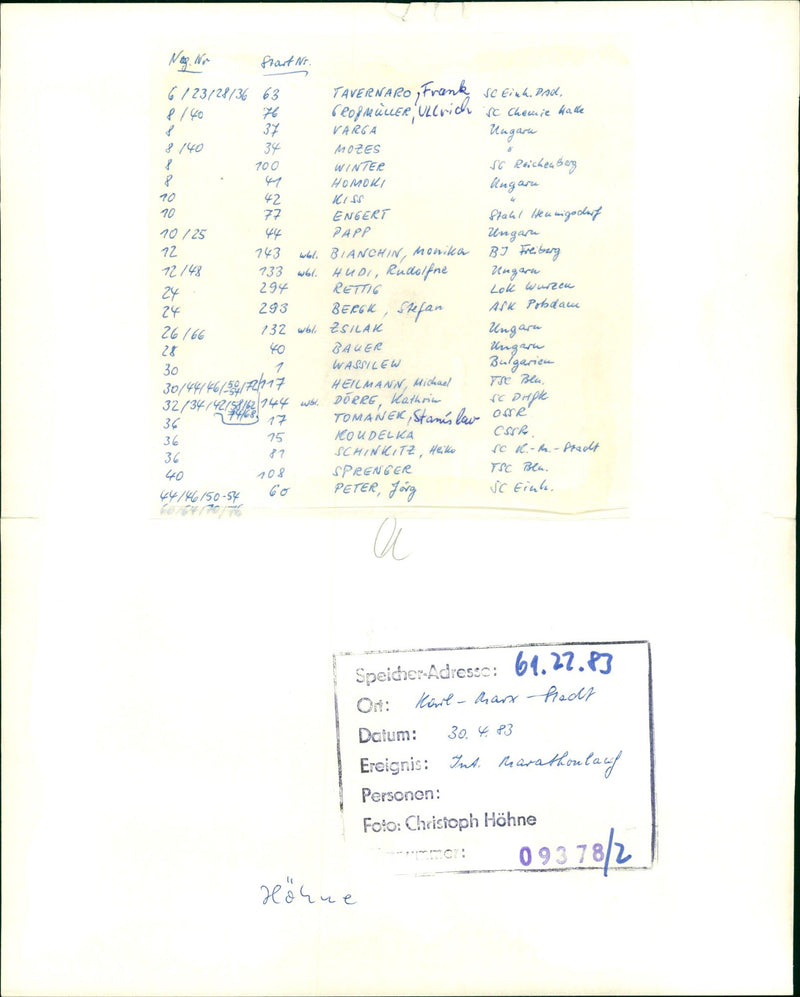 Neg. Nr Start Nr.
6/23/28/36 63 TAVERNARO, Frank SC Einh. Dsd.
8/40 76 GROßMÜLLER, Ullrich SC Chemie Halle
8 37 VARGA Ungarn
8/40 34 MOZES "
8 100 WINTER SG Reichenberg
8 41 HOMOKI Ungarn
10 42 KISS "
10 77 ENGERT Stahl Hennigsdorf
10/25 44 PAPP Ungarn
12 143 wbl. BIANCHIN, Monika BJ Freiberg
12/48 133 wbl. HUDI, Rudolfne Ungarn
24 294 RETTIG Lok Wurzen
24 293 BERGK, Stefan ASK Potsdam
26/66 132 wbl. ZSILAK Ungarn
28 40 BAUER Ungarn
30 1 WASSILEW Bulgarien
30/44/46/50-54/72/ 117 HEILMANN, Michael TSC Bln.
32/34/42/58/62 74/68 144 wbl. DÖRRE, Kathrin SC DHfK
36 17 TOMANEK, Stanislav CSSR
36 15 KOUDELKA CSSR.
36 81 SCHINKITZ, Heiko SC K.-M.-Stadt
40 108 SPRENGER TSC Bln.
44/46/50-54 60 PETER, Jörg SC Einh.
60/64/70/76
a
Speicher-Adresse: 61.22.83
Ort: Karl-Marx-Stadt
Datum: 30.4.83
Ereignis: Int. Marathonlauf
Personen:
Foto: Christoph Höhne
09378/2
Höhne